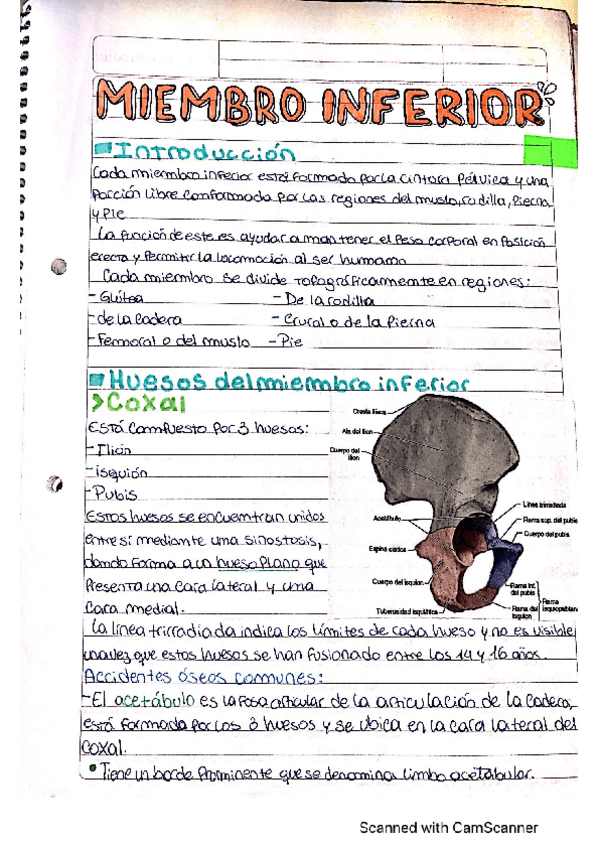 MIEMBRO INFERIOR
Introducción
Cada miembro inferior está formado por la cintura pélvica y una
porción libre conformada por las regiones del muslo, rodilla, pierna
y pie
La función de este es ayudar a mantener el peso corporal en posición
erecta y permitir la locomoción al ser humano
Cada miembro se divide topográficamente en regiones:
- Glútea - De la rodilla
- de la cadera - Crural o de la pierna
- Femoral o del muslo - Pie
Huesos del miembro inferior
> Coxal
Está compuesto por 3 huesos:
- Ilion
- isquión
- Pubis
Estos huesos se encuentran unidos
entre sí mediante una sinostosis,
dando forma a un hueso plano que
presenta una cara lateral y una
cara medial.
Cresta ilíaca
Ala del ilion
Cuerpo del
ilion
Acetábulo
Espina ciática
Cuerpo del isquion
Tuberosidad isquiática
Línea trirradiada
Rama sup. del pubis
Cuerpo del pubis
Rama inf.
del pubis
Rama del
isquion
Rama
isquiopubiana
La línea trirradiada indica los límites de cada hueso y no es visible
una vez que estos huesos se han fusionado entre los 14 y 16 años.
Accidentes óseos comunes:
- El acetábulo es la fosa articular de la articulación de la cadera,
está formada por los 3 huesos y se ubica en la cara lateral del
coxal.
• Tiene un borde prominente que se denomina limbo acetabular.
Scanned with CamScanner